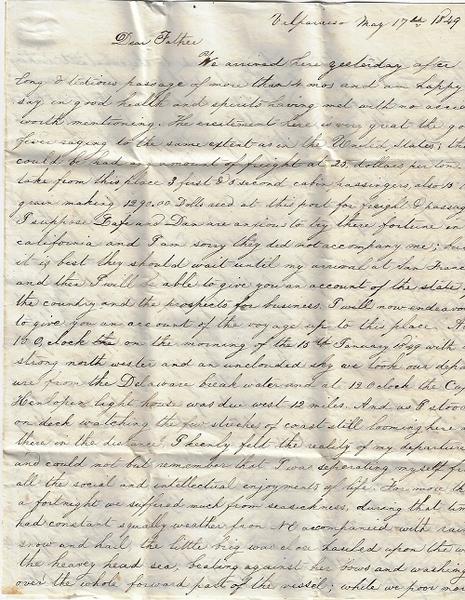 Valparaiso May 17th 1849
Dear Father
We arrived here yesterday after
long & tidious passage of more than 4 mos and am happy
say in good health and spirits having met with no acci
worth mentioning. The excitement here is very great the go
fever raging to the same extent as in the United States; the
could be had any amount of freight at 25 dollars per ton
take from this place 3 first & 5 second cabin passengers, also 15
grain making 1290.00 Dolls recd at this port for freight & passag
I suppose Lafe and Dan are anxious to try there fortune in
california and I am sorry they did not accompany me; but
it is best they should wait until my arrival at San Franc
and then I will be able to give you an account of the state
the country and the prospects for business. I will now endeavor
to give you an account of the voyage up to this place. A
10 O,clock on the morning of the 15th January 1849 with a
strong north wester and an unclouded sky we took our depar
ure from the Delaware break water and at 12 O clock the Cap
Henlopen light house was due west 12 miles. And as I stood
on deck watching the few streches of coast still looming here a
there in the distance. I keenly felt the reality of my departure
and could not but remember that I was seperating myself fro
all the social and intellectual enjoyments of life. For more th
a fortnight we suffered much from seasickness, during that tim
had constant squally weather from NE accompanied with rain
snow and hail, the little brig was close hauled upon the w
the heavey head sea, beating against her bows and washing
over the whole forward part of the vessel; while we poor mor